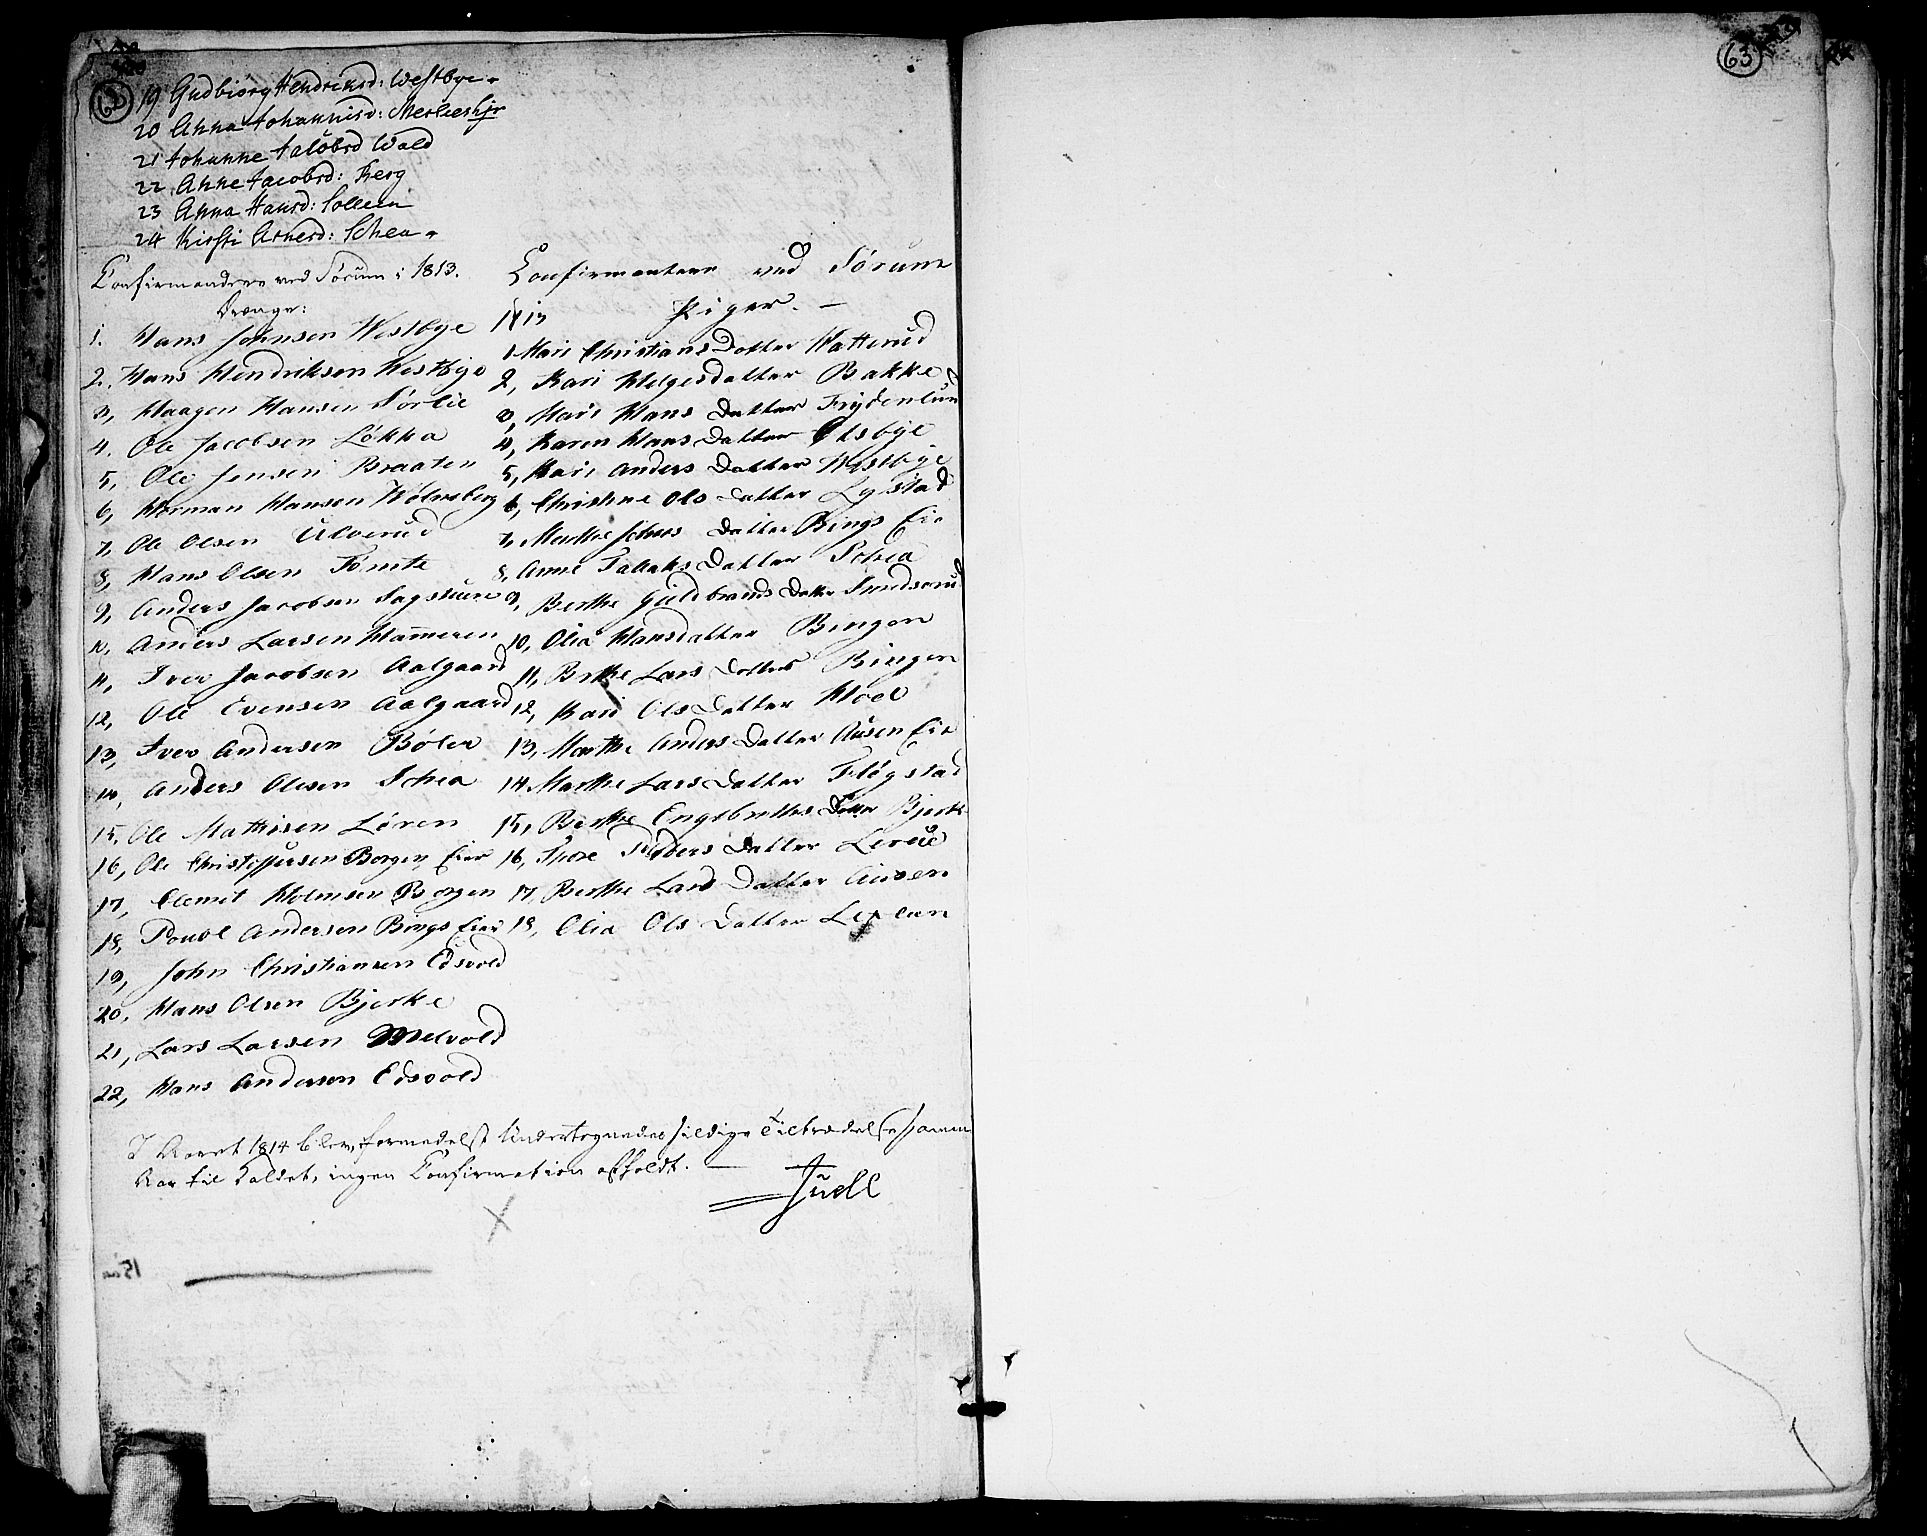 62
19 Gudbiørg Hendriksd: Westbye.
20 Anna Johannisd:
21 Johanne Jacobsd Wald
22 Anne Jacobsd: Berg
23 Anna Hansd: Sollein
24 Kirsti Arnesd: Schea.
Confirmanders ved Sørum i 1813.
Drenge:
1. Hans Johnsen Westbye
2. Hans Hendriksen Westbye
3, Haagen Hansen Sørlie
4. Ole Jacobsen Løkka
5, Ole Jensen Braaten
6, Herman Hansen Holmsberg
7, Ole Olsen Ulverud
8, Hans Olsen Tomte
9, Anders Jacobsen Sagstuen
10, Anders Larsen Hammeren
11, Iver Jacobsen Aalgaard
12, Ole Evensen Aalgaard
13, Iver Andersen Bøler
14, Anders Olesen Schea
15, Ole Mathisen Løren
16, Ole Christophersen Borgen Eier
17, Clemet Holmsen Borgen
18, Povel Andersen Bings Eier
19, John Christiansen Edsvold
20. Hans Olsen Bjerke
21, Lars Larsen Melvold
22, Hans Andersen Edsvold
Confirmantere ved Sørum
1813 Piger. —
1 Mari Christians Datter Watterud
2, Kari Helgesdatter Bakke
3, Mari Hans Datter Frydenlun
4, Karen Hans Datter Elsbye
5, Kari Anders Datter Westbye
6, Christine Ols Datter Lystad
7, Marthe Datter Bings Eie
8, Anne Datter Schea
9, Berthe Guldbrands Datter
10, Olia Hansdatter Bingen
11, Berthe Lars Datter Bingen
12, Kari Ols Datter Moe
13, Marthe Anders Datter Ausen Eie
14 Marthe Lars Datter Fløgstad
15, Berthe Engebreths Datter Bjerke
16, Datter
17, Berthe Lars Datter Ausen
18, Olia Ols Datter
I Aaret 1814 blev, formedelst Undertegnedes sildige Tiltrædelse samme
Aar til Kaldet, ingen Confirmation afholdt. —
Juell
63